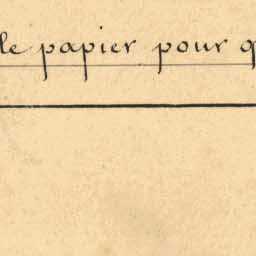 le papier pour q